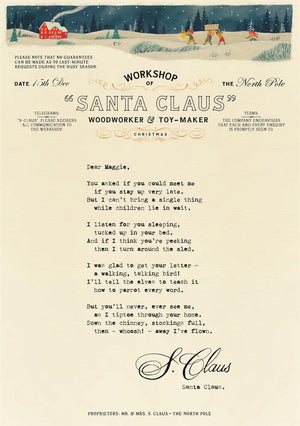 PLEASE NOTE THAT NO GUARANTEES
CAN BE MADE AS TO LAST-MINUTE
REQUESTS DURING THE BUSY SEASON
DATE 15th Dec
WORKSHOP
OF
THE North Pole
"SANTA CLAUS"
WOODWORKER & TOY-MAKER
CHRISTMAS
TELEGRAMS:
"S-CLAUS" PLEASE ADDRESS
ALL COMMUNICATION TO
THE WORKSHOP
TERMS:
THE COMPANY ENDEAVOURS
THAT EACH AND EVERY ENQUIRY
IS PROMPTLY SEEN TO
Dear Maggie,
You asked if you could meet me
if you stay up very late.
But I can't bring a single thing
while children lie in wait.
I listen for you sleeping,
tucked up in your bed.
And if I think you're peeking
then I turn around the sled.
I was glad to get your letter -
a walking, talking bird!
I'll tell the elves to teach it
how to parrot every word.
But you'll never, ever see me,
as I tiptoe through your home.
Down the chimney, stockings full,
then - whoosh! - away I've flown.
S. Claus
Santa Claus.
PROPRIETORS: MR. & MRS. S. CLAUS • THE NORTH POLE